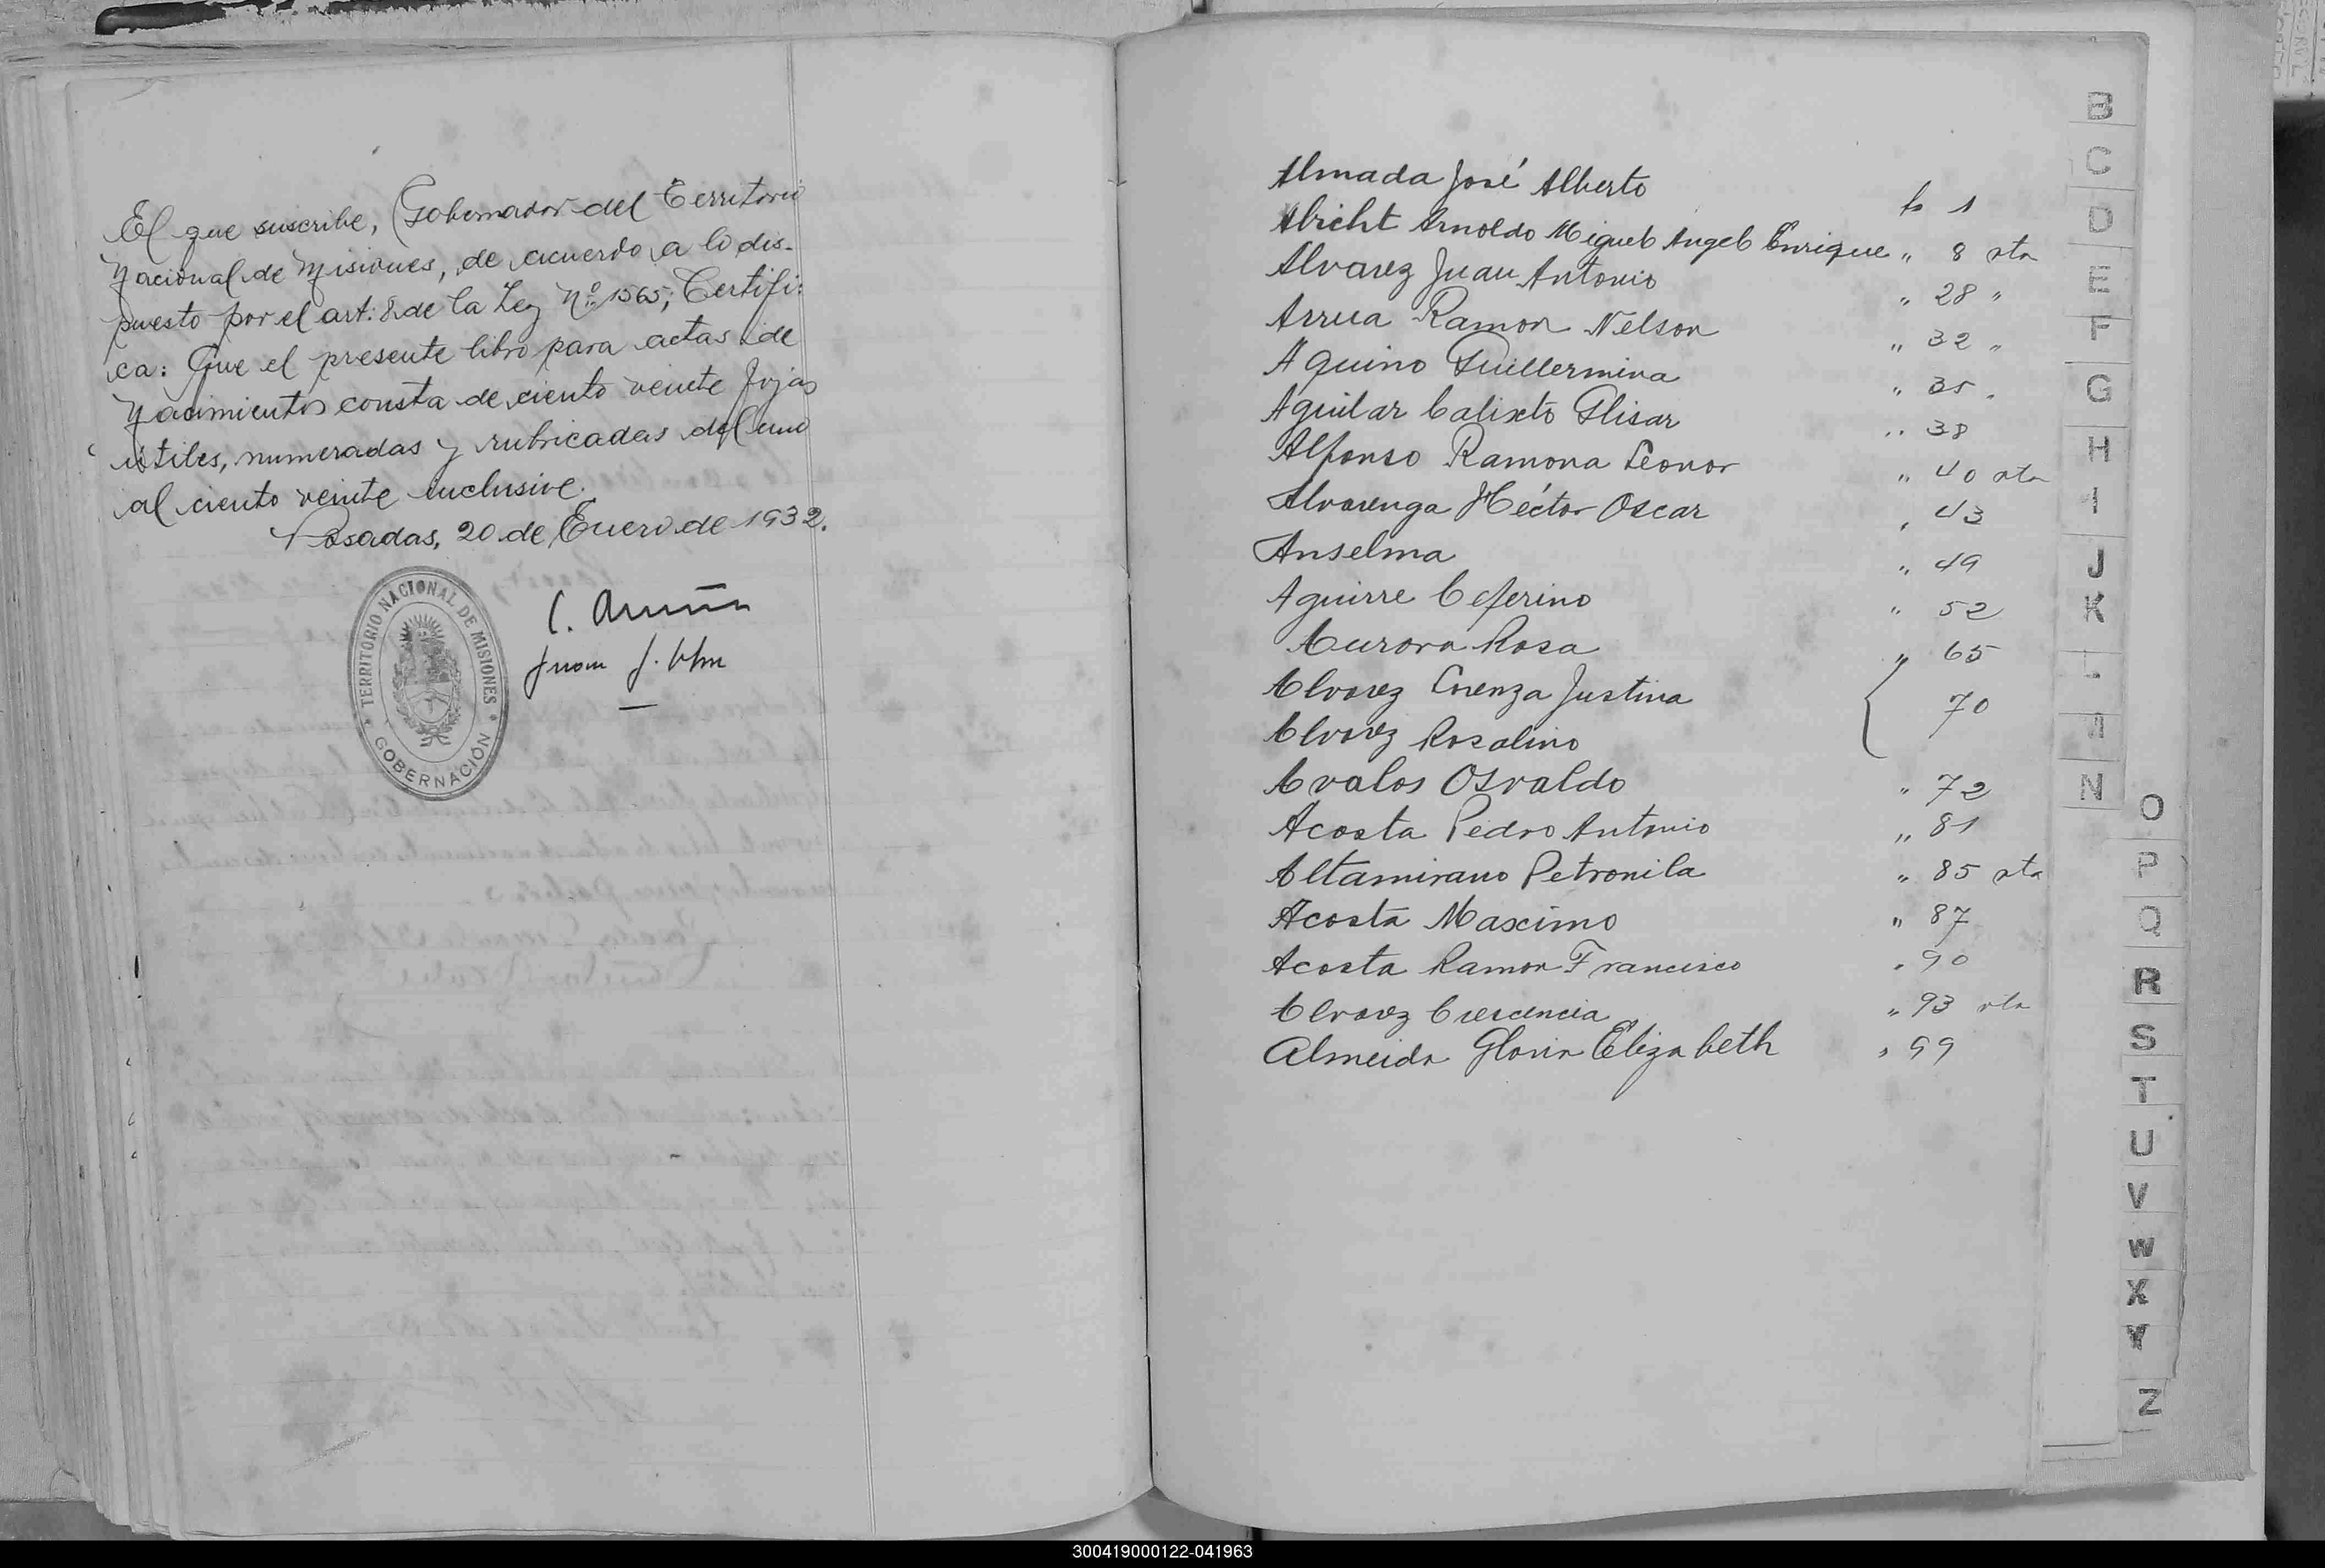 El que suscribe, Gobernador del Territorio
Nacional de Misiones, de acuerdo a lo dis-
puesto por el art: 8 de la Ley Nº 1565; Certifi:
ca: Que el presente libro para actas de
Nacimientos consta de ciento veinte fojas
útiles, numeradas y rubricadas del uno
al ciento veinte inclusive.
Posadas, 20 de Enero de 1932.
TERRITORIO NACIONAL DE MISIONES
GOBERNACIÓN
Almada José Alberto fo 1
Albicht Arnoldo Miguel Angel Enrique " 8 vta
Alvarez Juan Antonio " 28 "
Arrua Ramon Nelson " 32 "
Aquino Guillermina " 35 "
Aguilar Calixto Glisar " 38
Alfonso Ramona Leonor " 40 vta
Alvarenga Héctor Oscar " 43
Anselma " 49
Aguirre Ceferino " 52
Aurora Rosa " 65
Alvarez Lorenza Justina { 70
Alvarez Rosalino
Avalos Osvaldo " 72
Acosta Pedro Antonio " 81
Altamirano Petronila " 85 vta
Acosta Maximo " 87
Acosta Ramon Francisco " 90
Alvarez Crescencia " 93 vta
Almeida Gloria Elizabeth " 99
B
C
D
E
F
G
H
I
J
K
L
M
N
O
P
Q
R
S
T
U
V
W
X
Y
Z
300419000122-041963